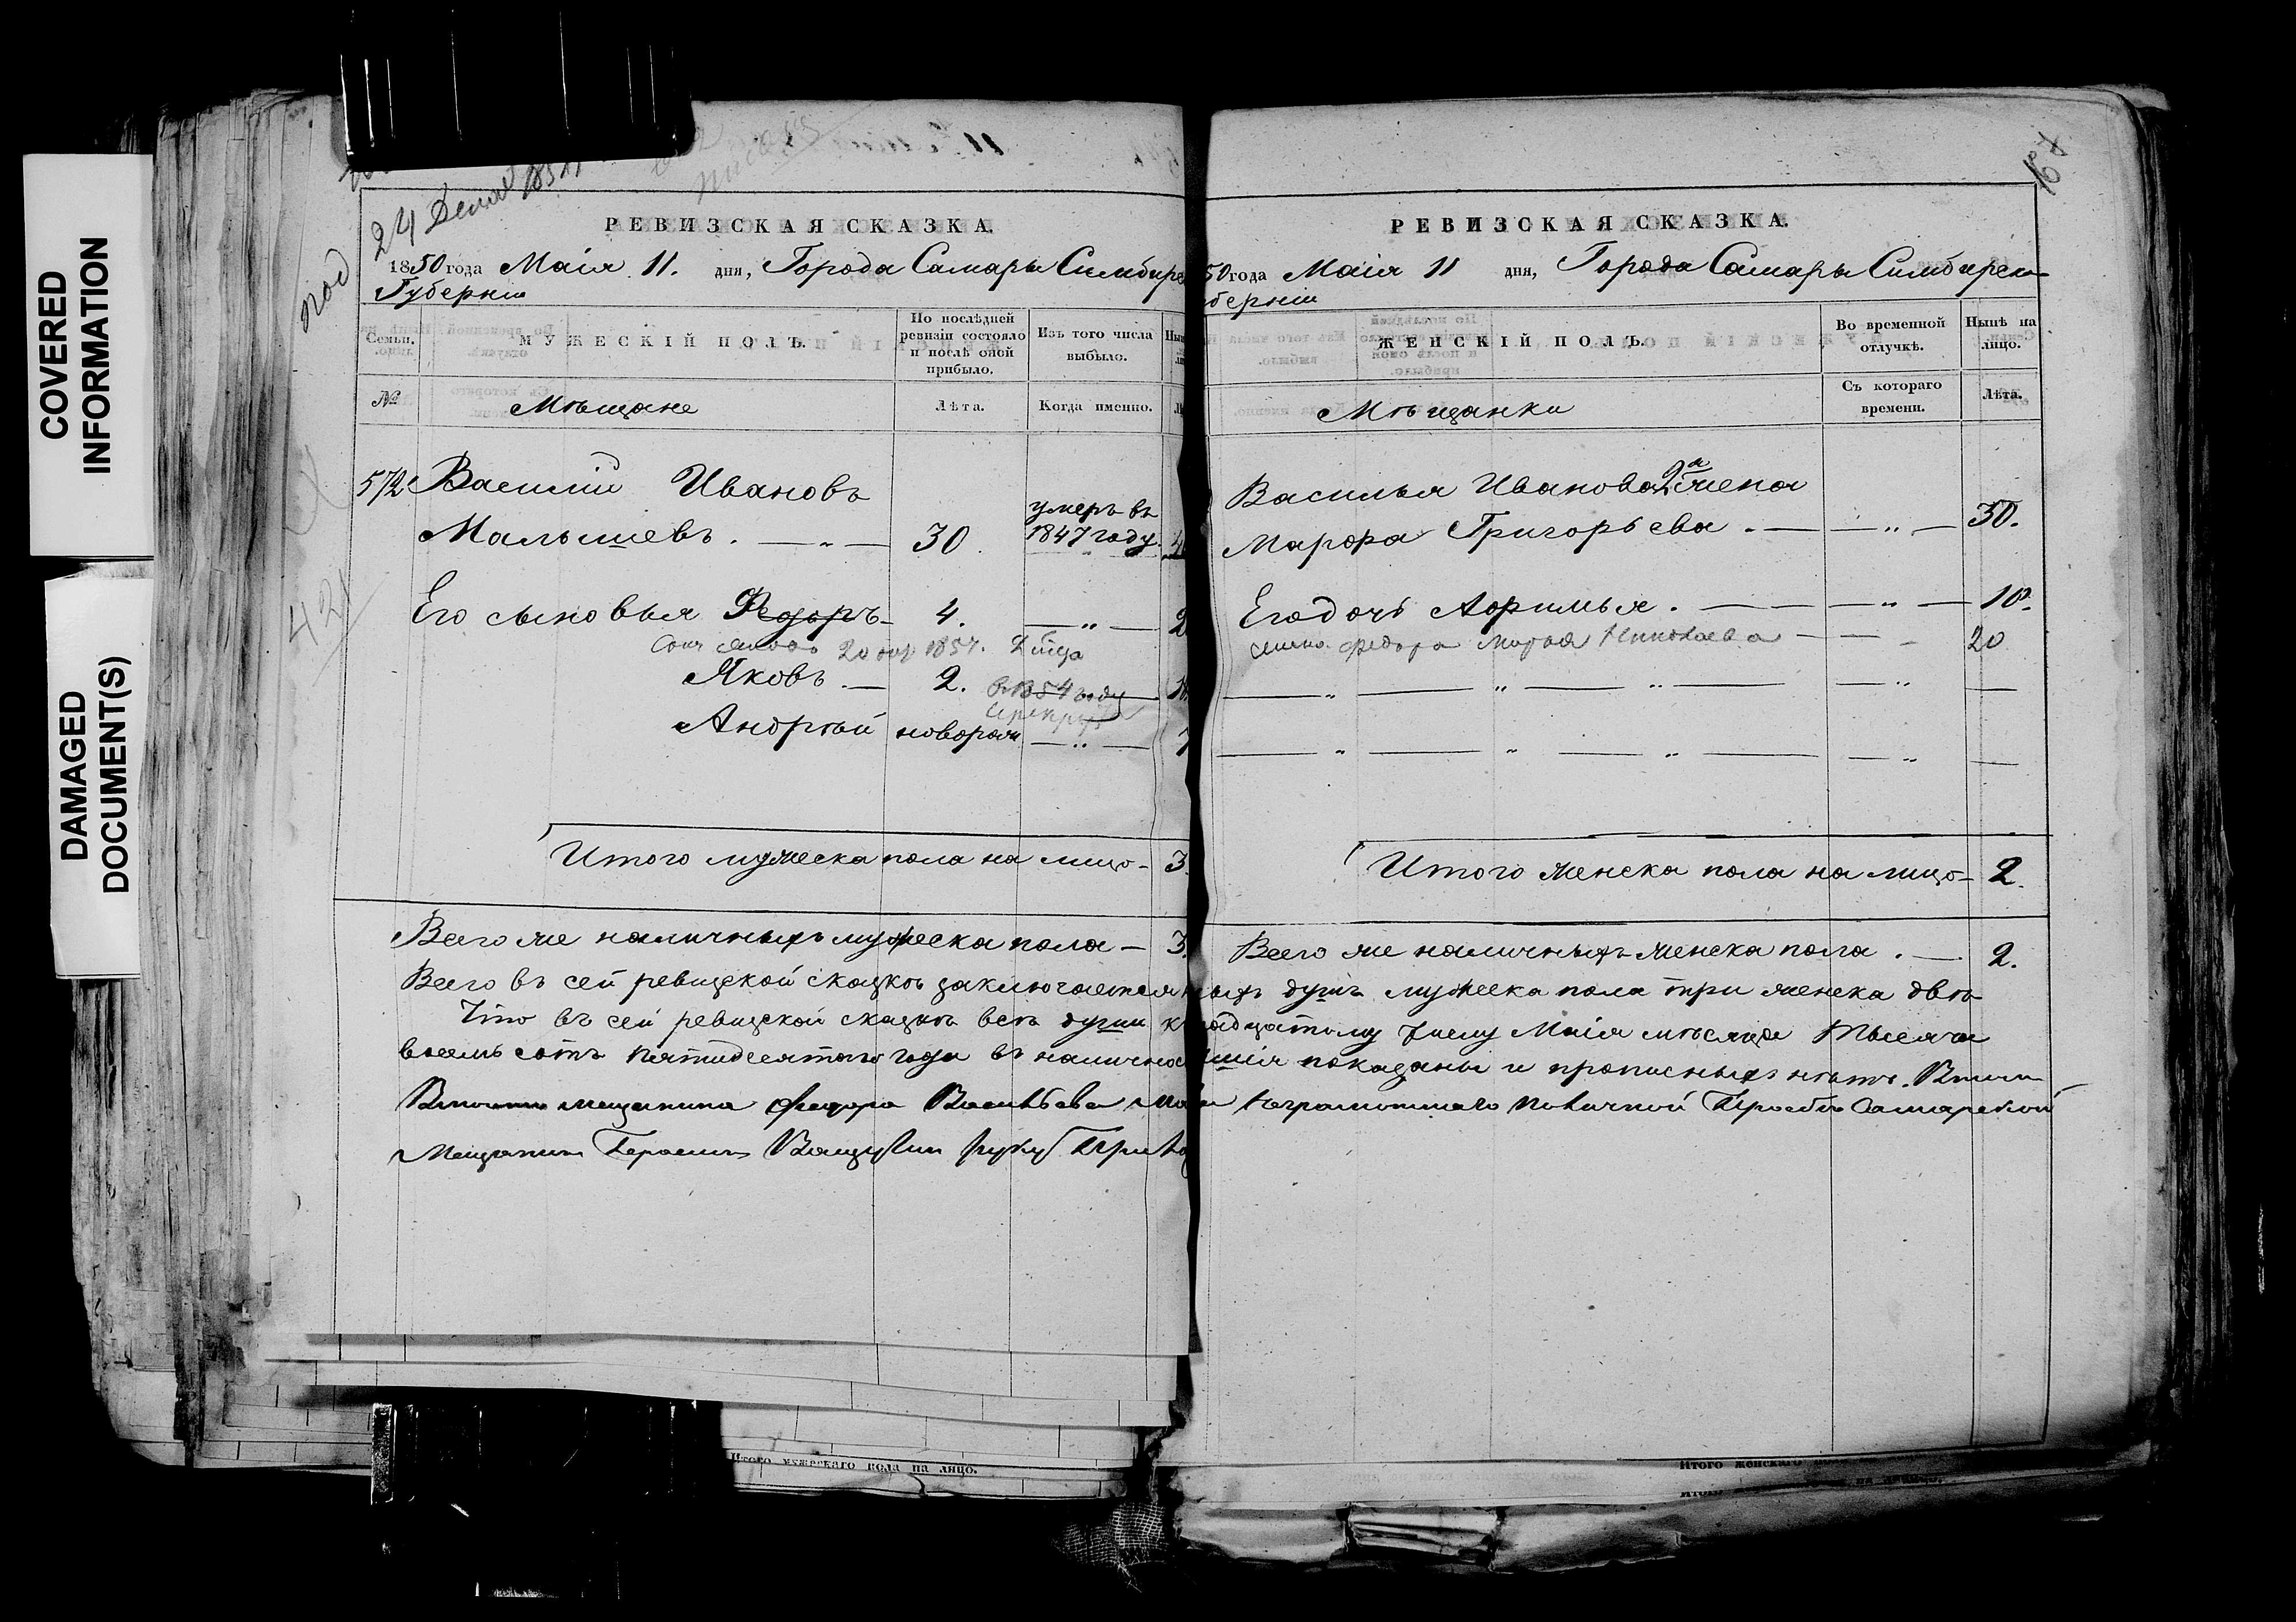 COVERED
INFORMATION
DAMAGED
DOCUMENT(S)
24 1851
под
421
РЕВИЗСКАЯ СКАЗКА.
1850 года Маія 11. дня, Города Самары Симбирс
Губерніи
Семьи.
МУЖЕСКІЙ ПОЛЪ.
По послѣдней ревизіи состояло и послѣ оной прибыло.
Изъ того числа выбыло.
№
Мѣщане
Лѣта.
Когда именно.
572 Василій Ивановъ
Малышевъ. 30. умеръ въ 1847 году.
Его сыновья Федоръ 4.
20 1851.
Яковъ. 2. 1854 году
Андрѣй новорож
Итого мужеска пола на лицо 3.
Всего же наличныхъ мужеска пола 3.
Всего въ сей ревизской сказкѣ заключается
Что въ сей ревизской сказкѣ всѣ души к
восемь сотъ пятидесятаго года въ налично
мещанина Федора Васильева
Мещанин Герасим руку
Итого мужескаго пола на лицо.
РЕВИЗСКАЯ СКАЗКА.
50 года Маія 11 дня, Города Самары Симбирск
берніи
ЖЕНСКІЙ ПОЛЪ.
Во временной отлучкѣ.
Нынѣ на лицо.
Мѣщанки
Съ котораго времени.
Лѣта.
Василья Иванова 2я жена
Марфа Григорьева. 30.
Его дочь Афимья. 10.
жена Федора Марья Николаева 20
Итого женска пола на лицо 2.
Всего же наличныхъ женска пола. 2.
ныхъ душъ мужеска пола три женска двѣ
надцатому числу Маія мѣсяца тысяча
шія показаны и прописныхъ нѣтъ.
неграмотнаго по личной прозьбе Самарской
Итого женскаго